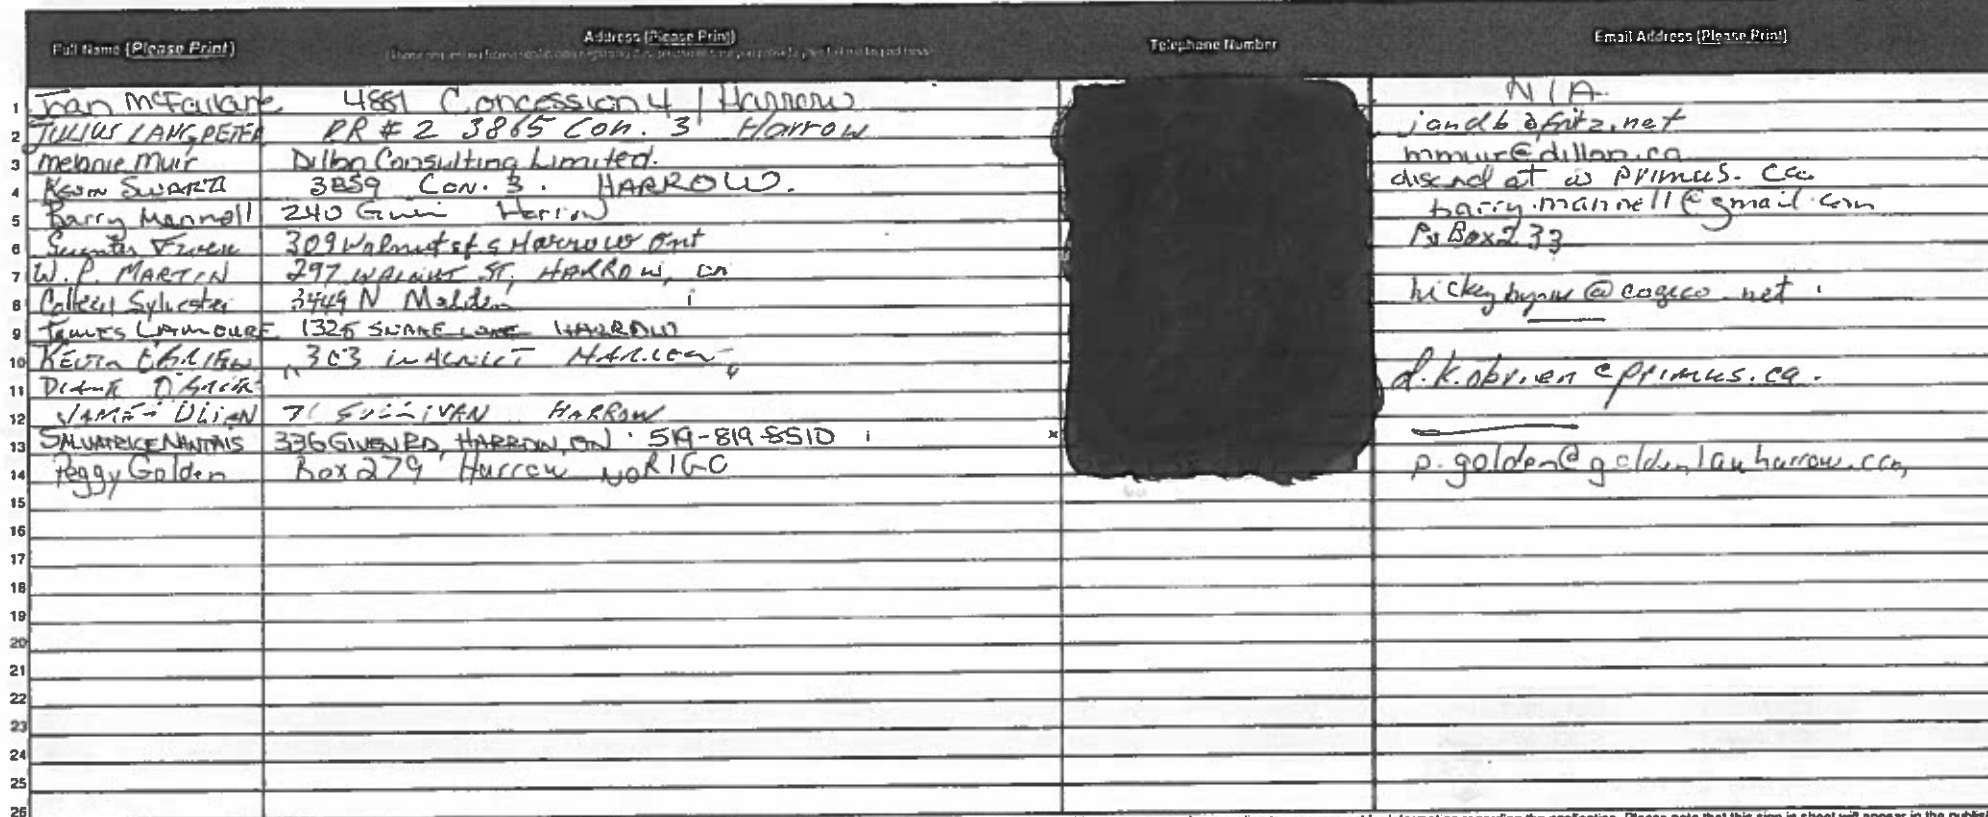 Full Name (Please Print) Address (Please Print) Telephone Number Email Address (Please Print)
1 Joan McFarlane 4881 Concession 4 Harrow N/A
2 JULIUS LANGPETER RR # 2 3865 Con. 3 Harrow jandb@fritz.net
3 Melanie Muir Dillon Consulting Limited. mmuir@dillon.ca
4 Kevin SWARTZ 3859 CON. 3. HARROW. at primus.ca
5 Barry Mannell 240 Harrow barry.mannell@gmail.com
6 309 Walnut st. s Harrow Ont Po Box 233
7 W.P. MARTIN 297 WALNUT ST, HARROW, on
8 Colleen Sylvester 3449 N Malden @cogeco.net
9 JAMES LAMOURE 1325 HARROW
10 KEVIN O'BRIEN 303 HARROW
11 DIANE O'BRIEN d.k.obrien@primus.ca.
12 JAMES SULLIVAN HARROW
13 SALVATRICE NANTAIS 336 GIVEN RD, HARROW, ON 519-819-8510
14 Peggy Golden Box 279 Harrow N0R 1G0 p.golden@goldenlawharrow.com
15
16
17
18
19
20
21
22
23
24
25
26
information regarding the application. Please note that this sign in sheet will appear in the